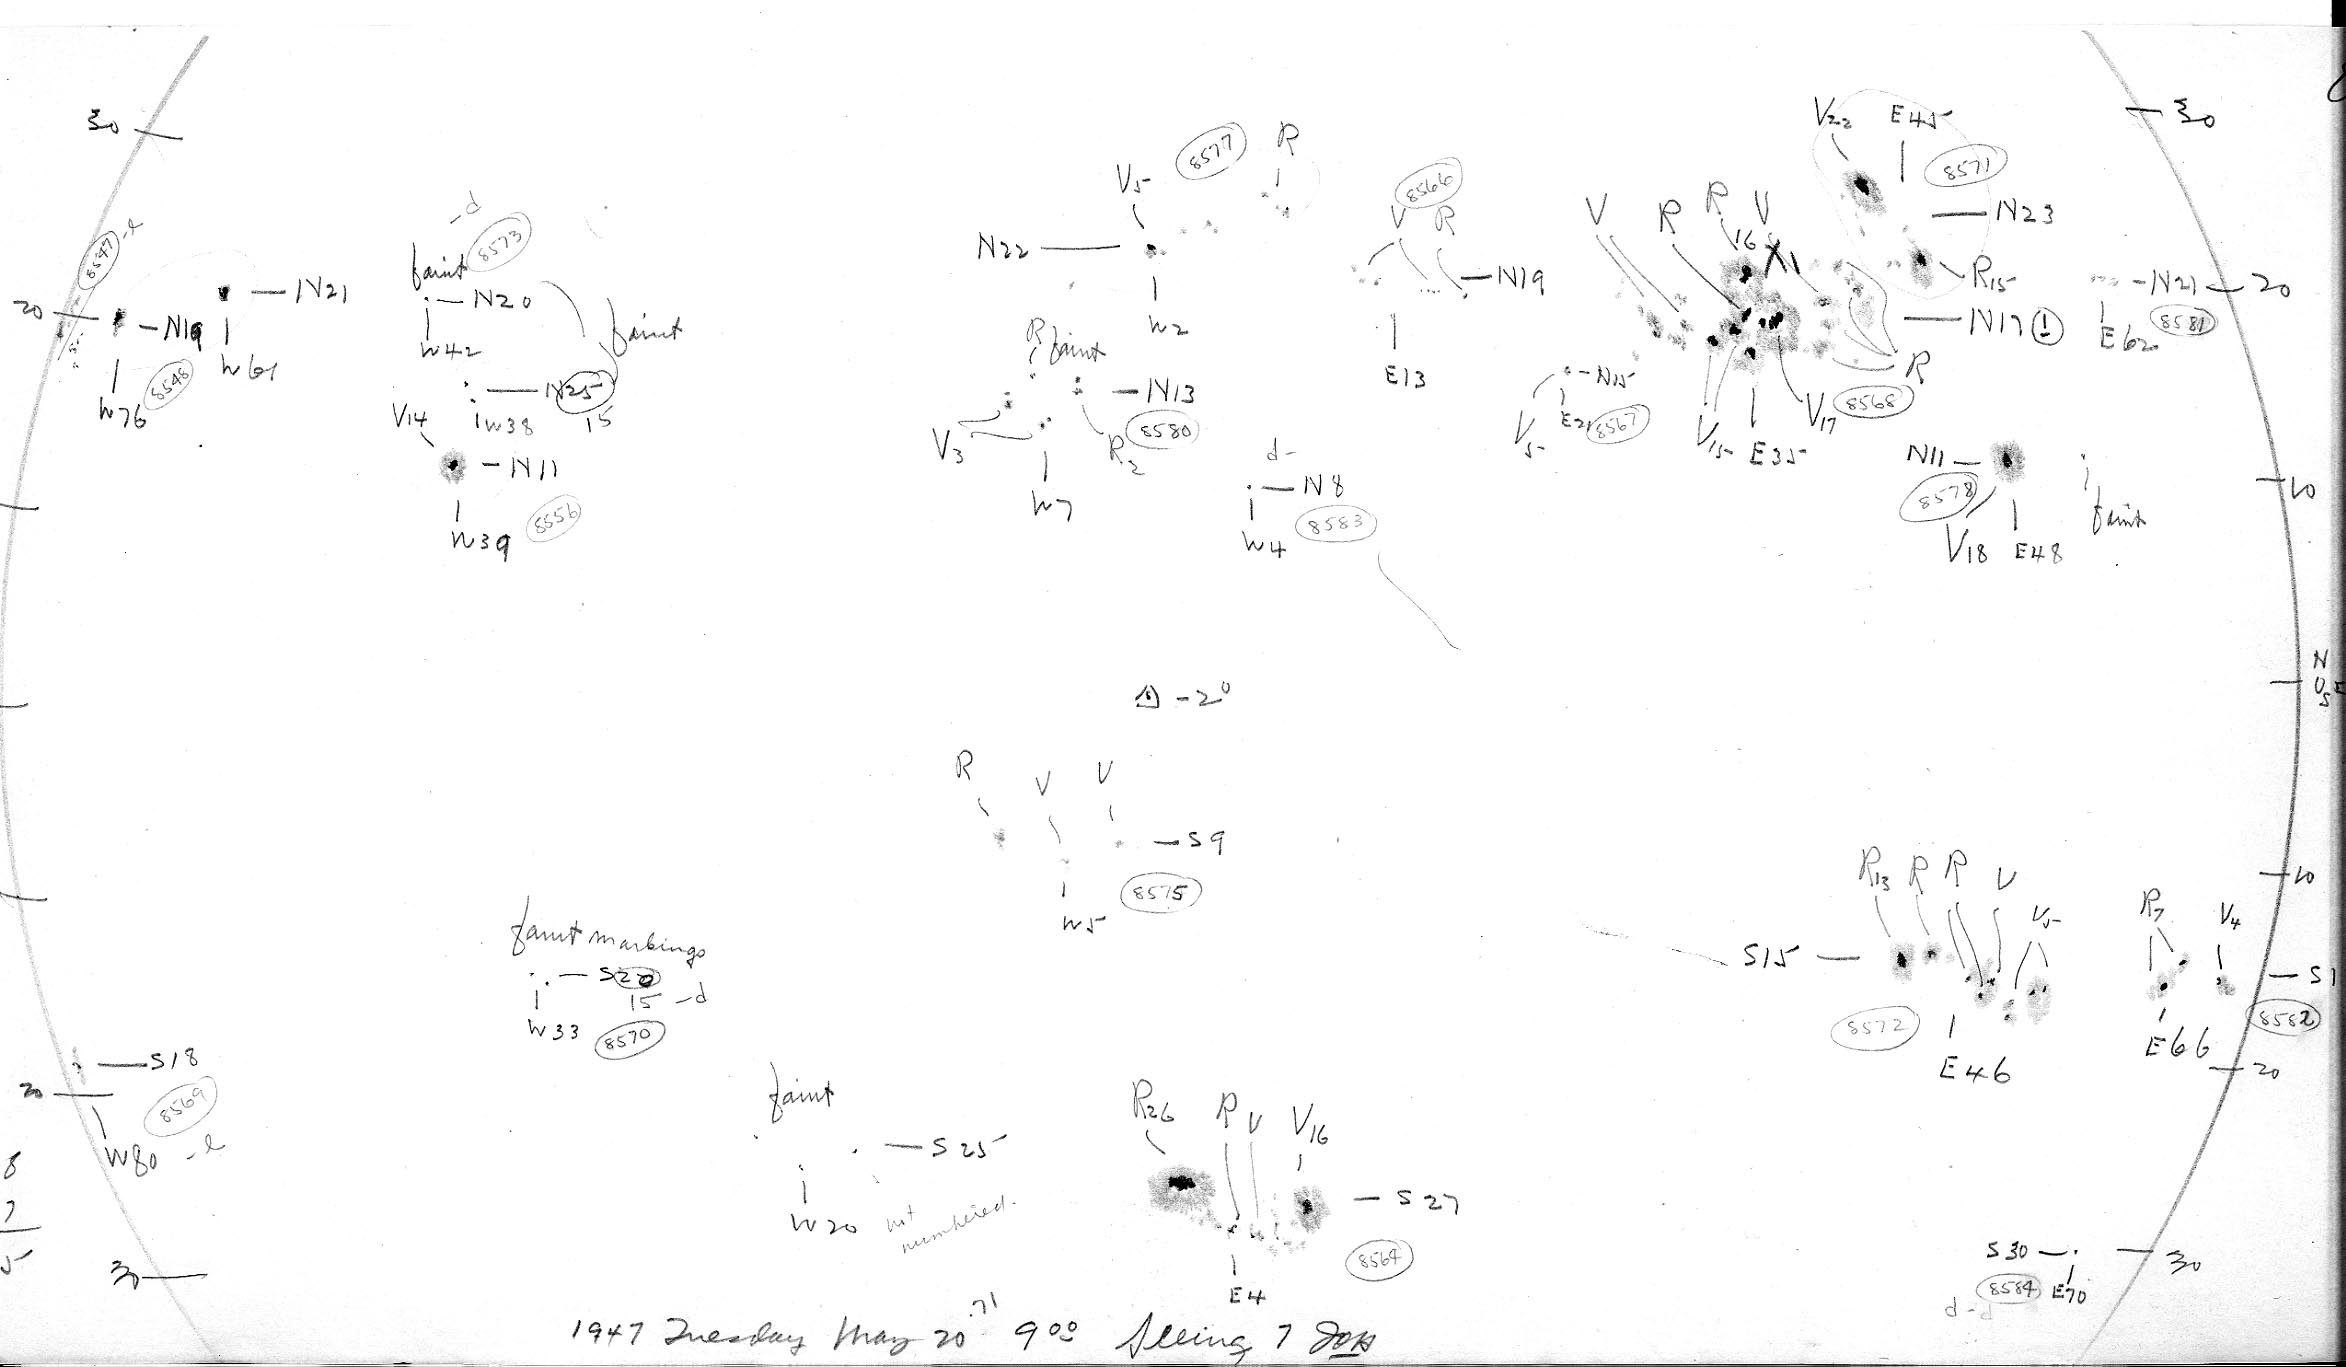 30
20
8547 -l
N19
W76
8548
N21
W61
-d
8573
faint
N20
W42
faint
N25
15
W38
V14
N11
W39
8556
8577
R
V5
N22
W2
R faint
N13
V3
R2
8580
W7
d-
N8
8583
W4
8566
V R
N19
E13
V22 E45
8571
N23
R15
V R R V
16
N17 1
R
V5
N15
8567
V15 E35 V17
8568
N11
8578
V18 E48
faint
N21
E62
8581
30
20
10
N
0
S
E
-2°
R V V
S9
8575
W5
faint markings
S20
15 -d
W33
8570
S18
20
8569
W80 -l
8
7
5
30
faint
S25
W20
not numbered.
R26 R V V16
S27
8564
E4
R13 R R V V5
S15
8572
E46
R7 V4
S1
8582
E66
10
20
S30
30
8584 E70
d-d
1947 Tuesday May 20 .71 9 00 Seeing 7